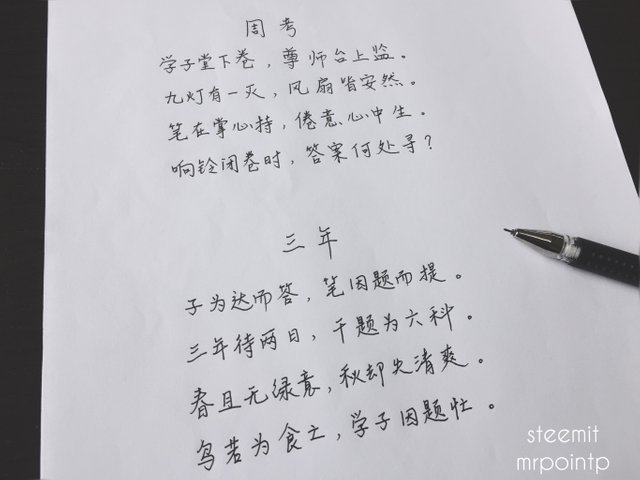 周考
学子堂下卷，尊师台上监。
九灯有一灭，风扇皆安然。
笔在掌心持，倦意心中生。
响铃闭卷时，答案何处寻？
三年
子为达而答，笔因题而提。
三年待两日，千题为六科。
春且无绿意，秋却失清爽。
鸟若为食亡，学子因题忙。
steemit
mrpointp